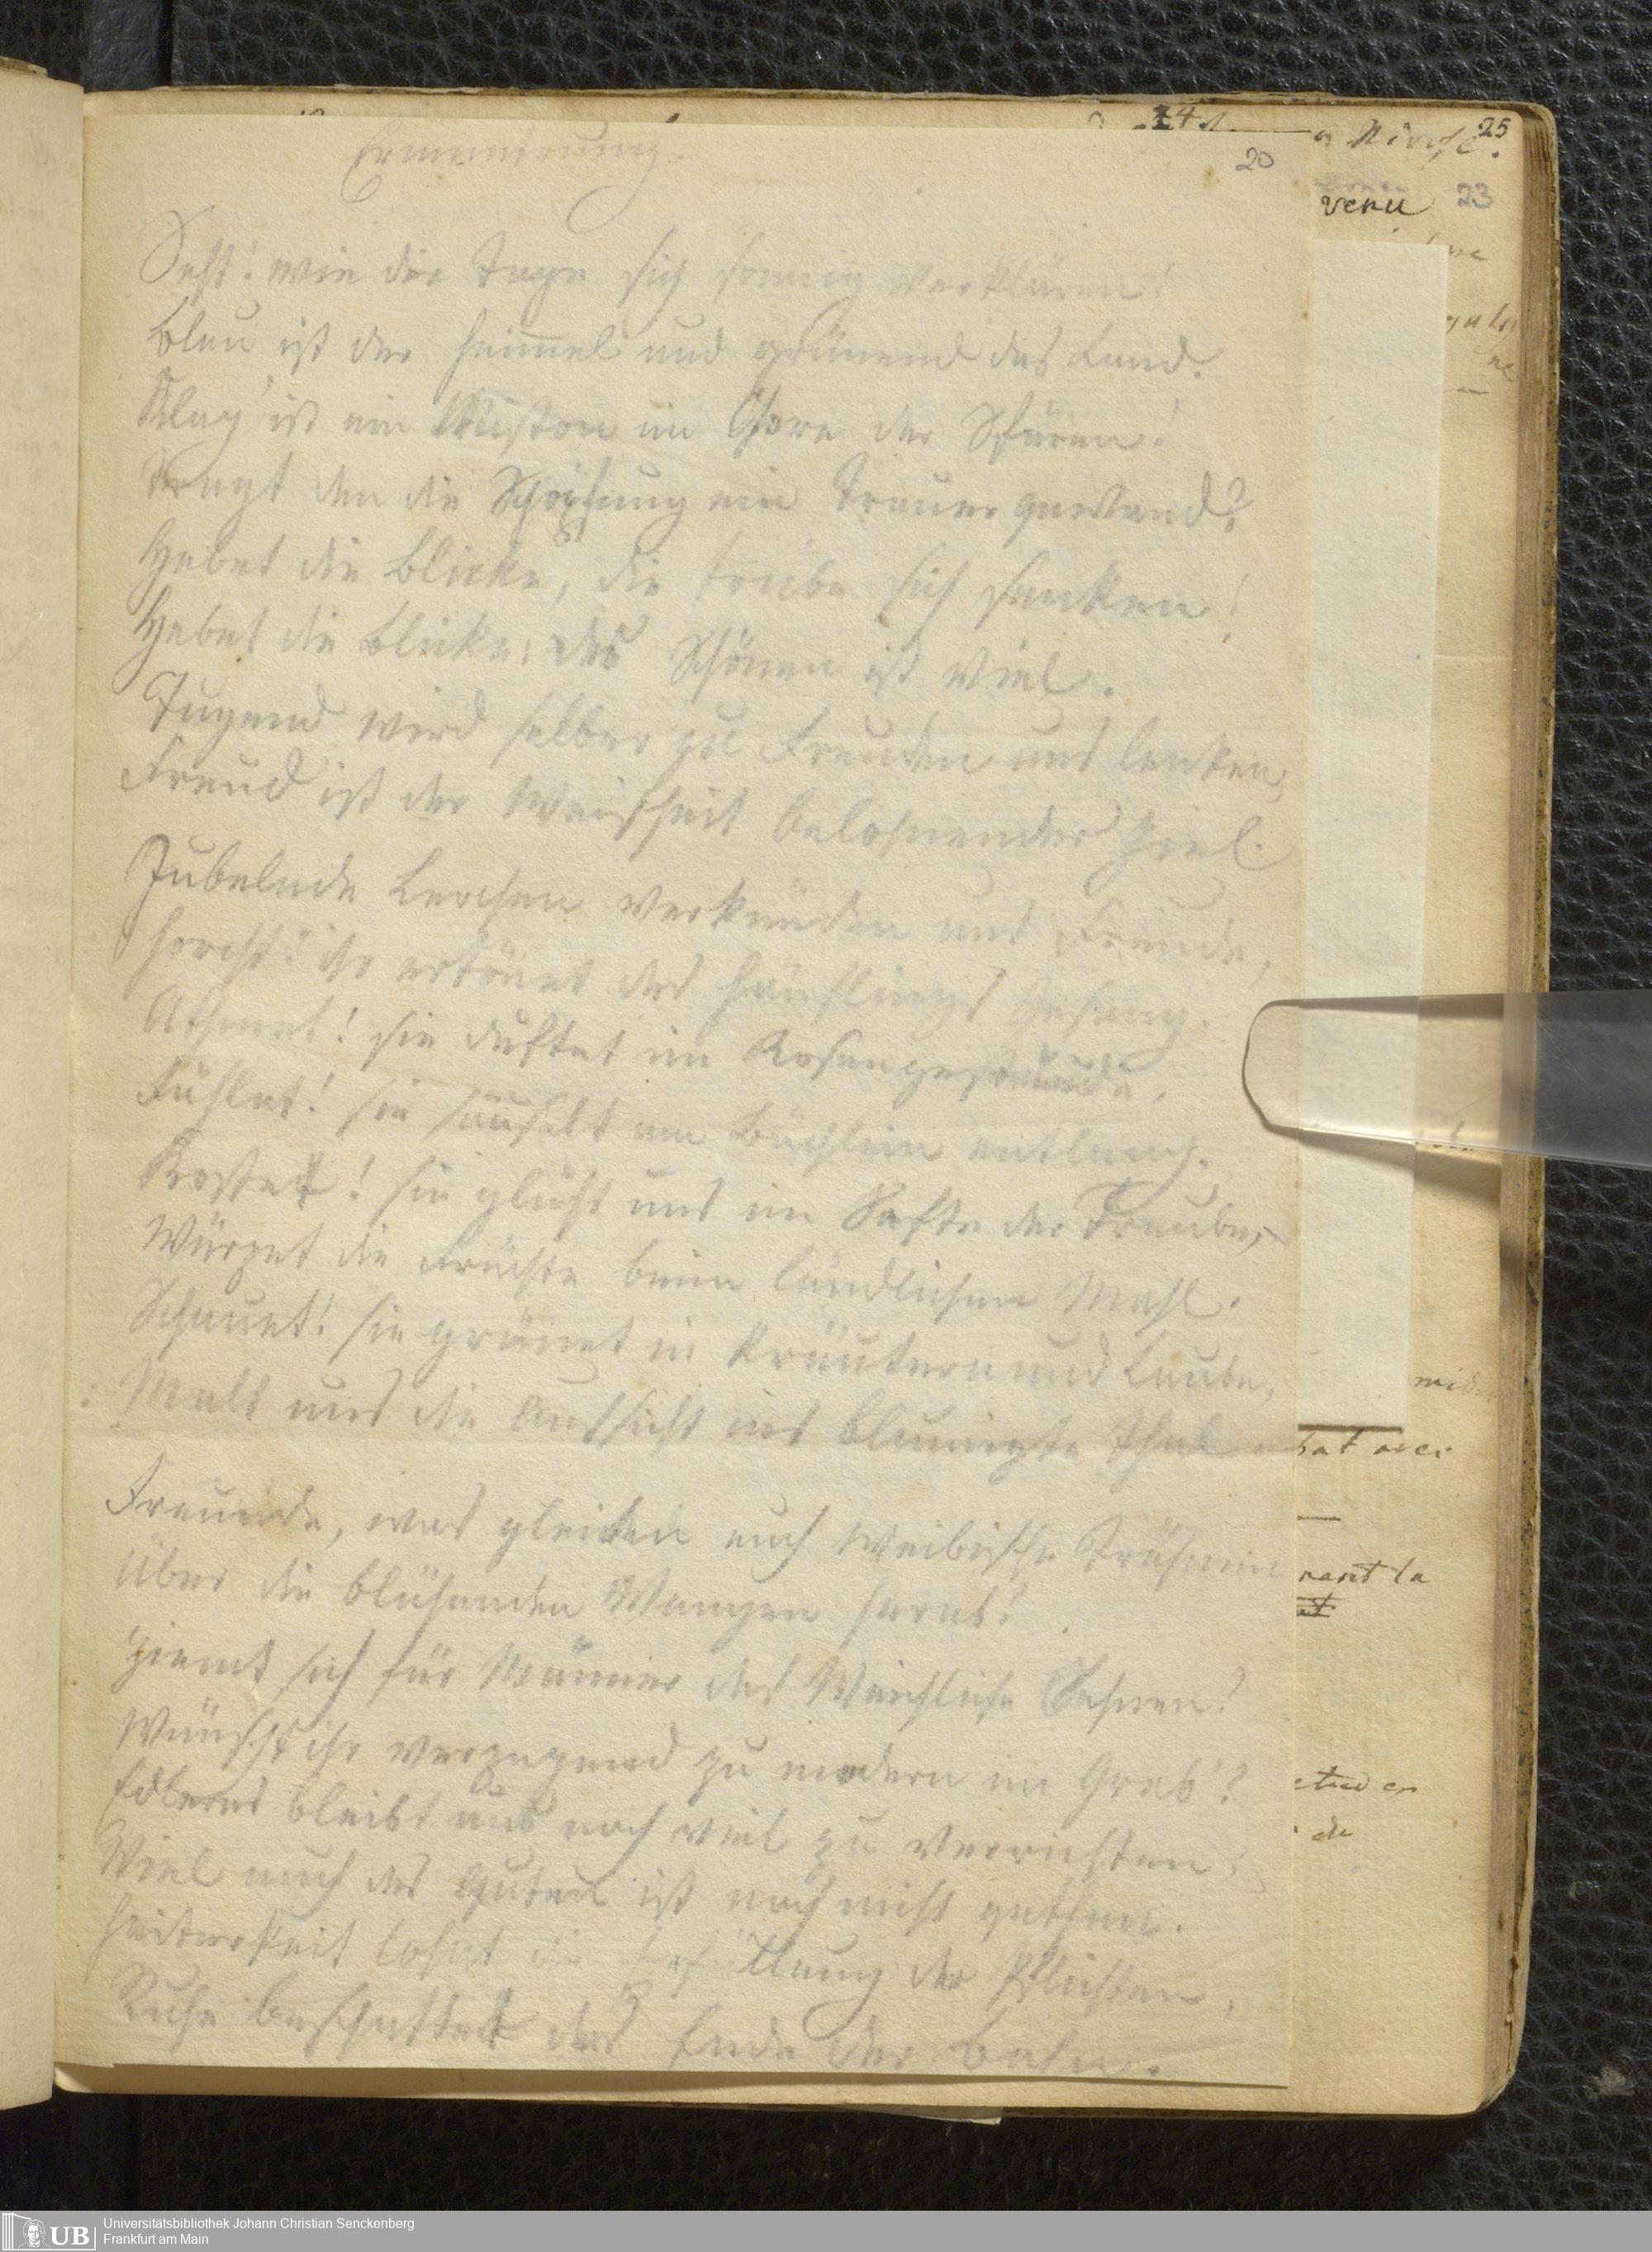 Ermunterung.
20
25
23
24
veru
Seht! wie die Tage sich sonnig verklären!
Blau ist der Himmel und grünend das Land.
Klag' ist ein Miston im Chore der Sphären!
Trägt den die Schöpfung ein Trauergewand?
Hebet die Blicke, die trübe sich senken!
Hebet die Blicke: des Schönen ist viel.
Tugend wird selber zu Freuden uns lenken;
Freud ist der Weisheit belohnendes Ziel.
Jubelnde Lerchen verkünden uns Freude,
Horcht! ihr ertönet des Hänflings Gesang.
Athmet! sie duftet im Rosengestäude,
Fühlet! sie säuselt am Bächlein entlang.
Kostet! sie glüht uns im Safte der Traube,
Würzet die Früchte beim ländlichen Mahl.
Schauet! sie grünet in Kräutern und Laube,
Malt uns die Aussicht ins blumigte Thal
Freunde, was gleiten euch weibische Thränen
Über die blühenden Wangen herab?
Ziemt sich für Männer das weichliche Sehnen?
Wünscht ihr verzagend zu modern im Grab?
Edleres bleibt uns noch viel zu verrichten;
Viel auch des Guten ist noch nicht gethan.
Heiterkeit lohnt die Erfüllung der Pflichten,
Ruhe beschattet das Ende der Bahn.
hat avec
nant la
de
UB
Universitätsbibliothek Johann Christian Senckenberg
Frankfurt am Main